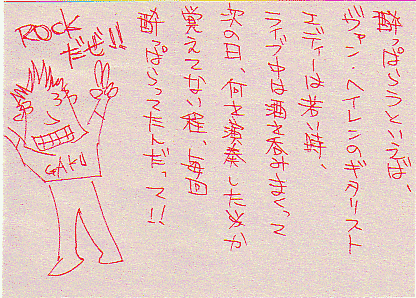 酔っぱらうといえば
ヴァン・ヘイレンのギタリスト
エディーは若い時、
ライブ中は酒を呑みまくって
次の日、何を演奏したか
覚えてない程、毎回
酔っぱらってたんだって!!
ROCK
だぜ!!
GAKU